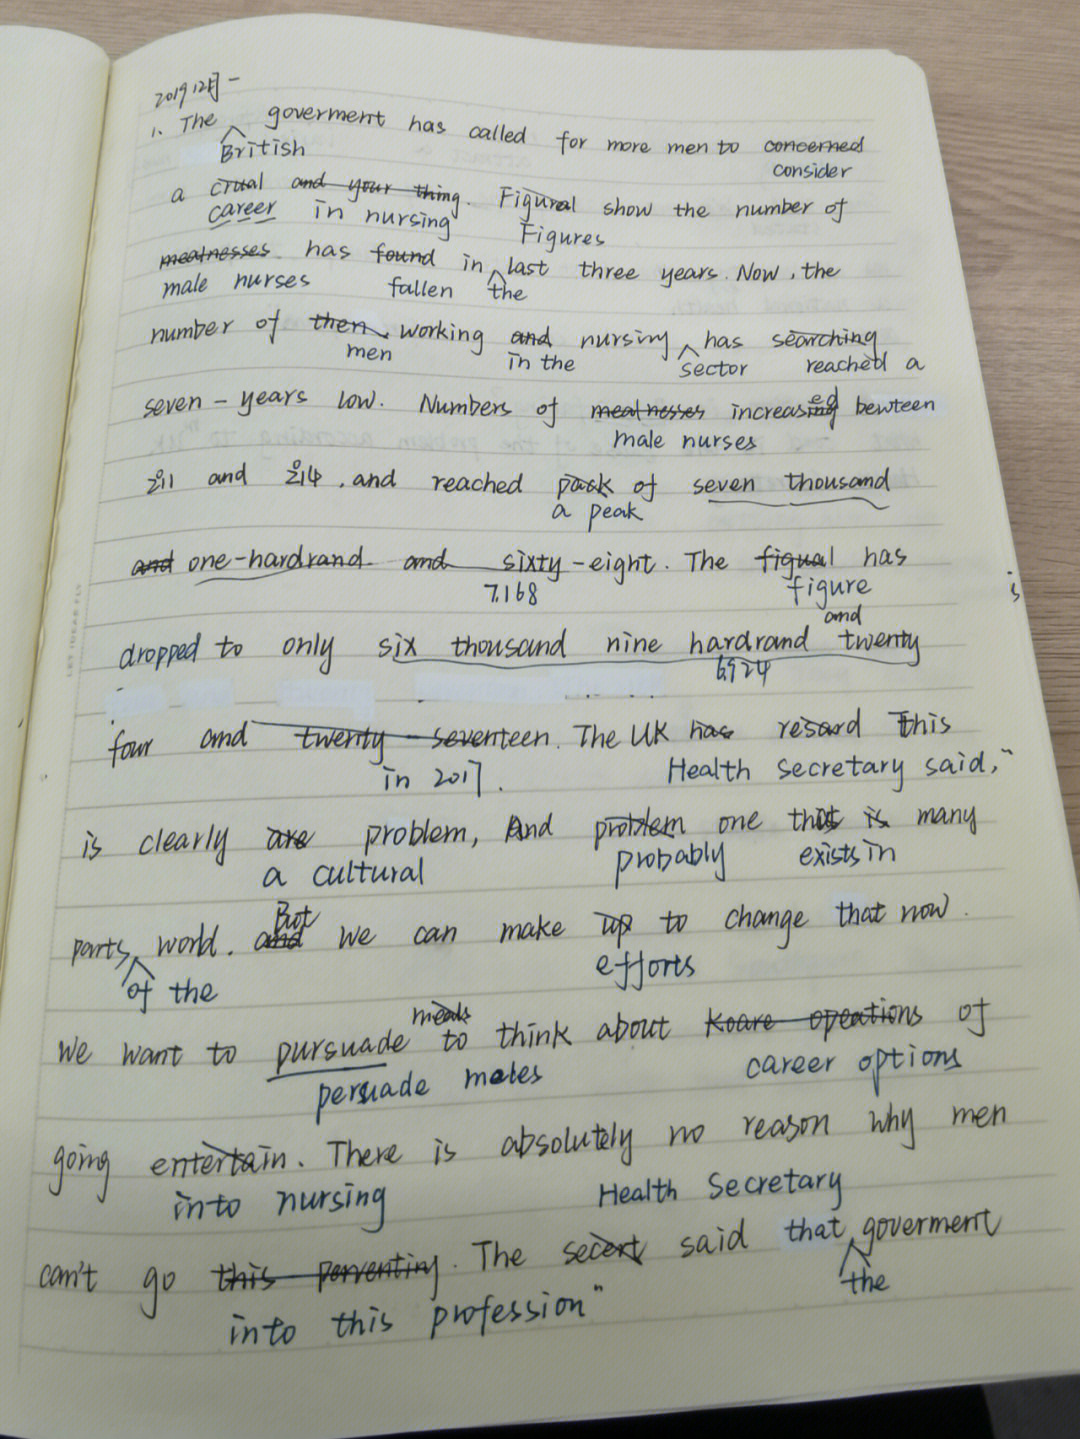 2019 12月 一
1. The goverment has called for more men to concerned
British consider
a crual and your thing. Figural show the number of
career in nursing Figures
mealnesses has found in last three years. Now, the
male nurses fallen the
number of then working and nursing has searching
men in the sector reached a
seven - years low. Numbers of mealnesses increasing ed bewteen
male nurses
211 and 214, and reached pack of seven thousand
a peak
and one-hardrand and sixty-eight. The figual has
7.168 figure
and
dropped to only six thousand nine hardrand twenty
6924
four and twenty seventeen. The UK has resard This
in 2017. Health Secretary said, "
is clearly are problem, And problem one that is many
a cultural probably exists in
But
parts world. and we can make up to change that now.
of the efforts
meals
we want to pursuade to think about koare opeations of
persuade males career options
going entertain. There is absolutely no reason why men
into nursing Health Secretary
can't go this perventing. The secert said that goverment
into this profession" the